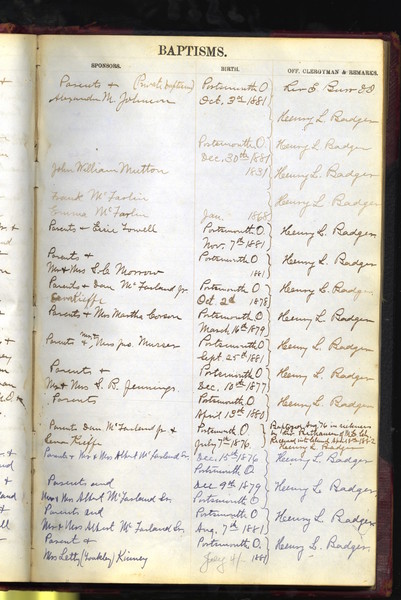 BAPTISMS.
SPONSORS. BIRTH. OFF. CLERGYMAN & REMARKS.
Parents & (Private baptism) Portsmouth O Rev E. Burr DD
Alexander M. Johnson Oct. 3rd 1881
Henry L. Badger
Portsmouth O. Henry L. Badger
Dec. 30th 1881
John William Mutton 1831 Henry L. Badger
Frank McFarlin Henry L. Badger
Emma McFarlin Jan. 1868
Parents & Lowell Portsmouth O. Henry L. Badger
Nov. 7th 1881
Parents & Portsmouth O Henry L. Badger
Mr & Mrs Morrow 1881
Parents & Dan McFarland Jr. Portsmouth O. Henry L. Badger
Oct. 2d 1878
Parents & Mrs Martha Portsmouth O. Henry L. Badger
March 16th 1879
Parents & Mr & Mrs Jno. Musser Portsmouth O Henry L. Badger
Sept 25th 1881
Parents & Portsmouth O Henry L. Badger
Mr & Mrs S. R. Jennings. Dec. 10th 1877
Parents Portsmouth O. Henry L. Badger
April 13th 1880
Parents Dan McFarland Jr & Portsmouth O.
July 7th 1876. Henry L. Badger
Parents & Mr & Mrs Albert McFarland Sr. Dec. 15th 1876 Henry L. Badger
Portsmouth O
Parents and Dec 9th 1879 Henry L. Badger
Mr & Mrs Albert McFarland Sr. Portsmouth O
Parents and Portsmouth O Henry L. Badger
Mr & Mrs Albert McFarland Sr. Aug. 7th 1881
Parent & Portsmouth O. Henry L. Badger.
Mrs Letty Kinney 1881